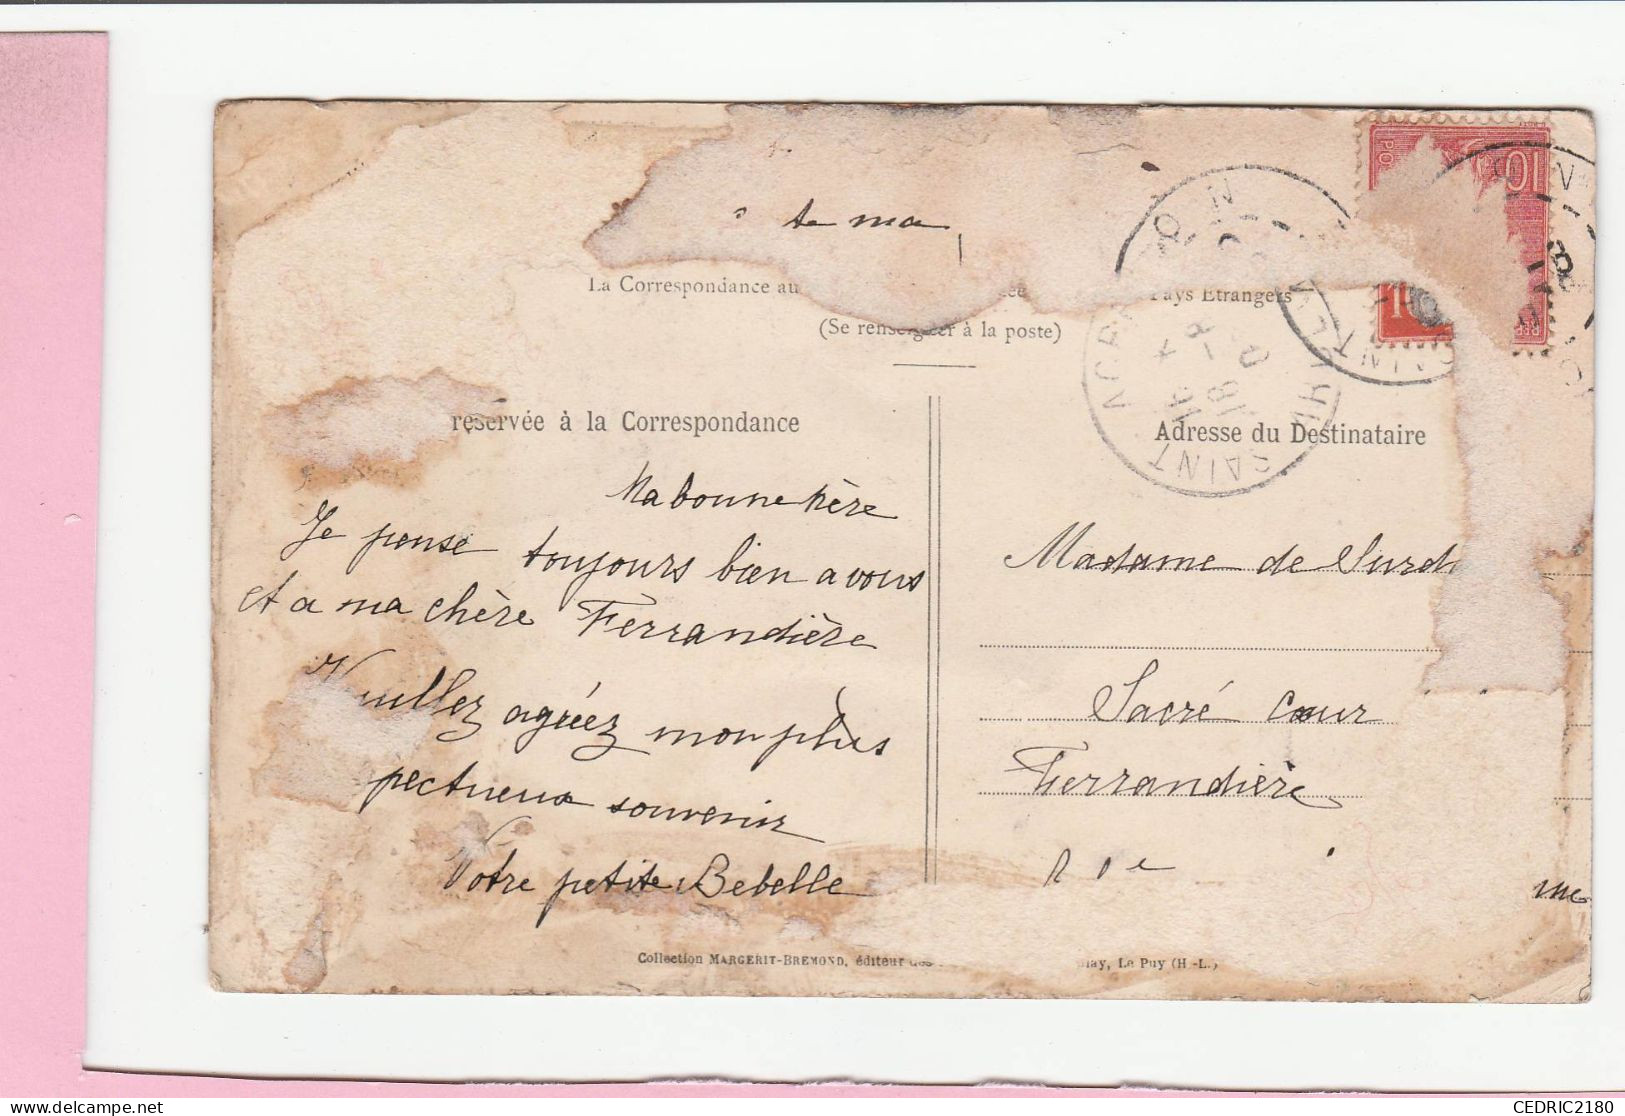 te ma
La Correspondance au
Pays Etrangers
(Se renseigner à la poste)
réservée à la Correspondance
Adresse du Destinataire
Ma bonne Mère
Je pense toujours bien a vous
et a ma chère Ferrandière
Veuillez agréez mon plus
pectueux souvenir
Votre petite Bebelle
Madame de Surd
Sacré cœur
Ferrandière
Collection MARGERIT-BREMOND, éditeur des
lay, Le Puy (H-L.)
10
10
SAINT
CEDRIC2180